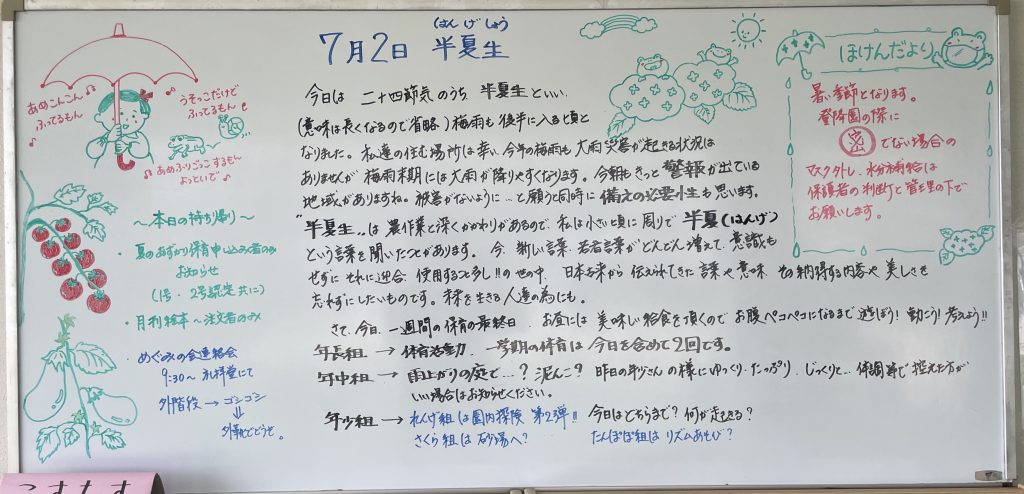 はんげしょう
7月2日 半夏生
今日は 二十四節気のうち、半夏生といい、
(意味は長くなるので省略)梅雨も後半に入る頃と
なりました。私達の住む場所は幸い、今年の梅雨も大雨災害が起きる状況は
ありませんが 梅雨末期には大雨が降りやすくなります。今朝もきっと警報が出ている
地域がありますね。被害がないように…と願うと同時に備えの必要性も思います。
"半夏生"は農作業と深くかかわりがあるので、私は小さい頃に周りで半夏(はんげ)
という言葉を聞いたことがあります。今、新しい言葉、若者言葉がどんどん増えて、意識も
せずに それに迎合、使用すること多し!!の世の中、日本古来から 伝えられてきた言葉や意味
納得する内容や 美しさを
忘れずにしたいものです。未来を生きる人達の為にも。
さて、今日、一週間の保育の最終日、お昼には 美味しい給食を頂くので お腹ペコペコになるまで 遊ぼう!動こう!考えよう!!
年長組 → 体育活動、一学期の体育は 今日を含めて2回です。
年中組 → 雨上がりの庭で…?泥んこ?昨日の年少さんの様にゆっくり、たっぷり、じっくりと… 体調等で控えた方が
いい場合はお知らせください。
年少組 → れんげ組は園内探険 第2弾!! 今日はどちらまで?何が起きる?
さくら組は 砂場へ? たんぽぽ組は リズムあそび?
あめこんこん♪
ふってるもん
うそっこだけど
ふってるもん
♪あめふりごっこするもん
よっといで♪
〜本日の持ち帰り〜
・夏のおずかり保育申し込み者のみ
お知らせ
(1号・2号認定共に)
・月刊絵本〜注文者のみ
・めぐみの会連絡会
9:30〜 礼拝堂にて
外階段→ゴシゴシ
外靴でどうぞ。
ほけんだより
暑い季節となります。
登降園の際に
密 でない場合の
マスク外し、水分補給は
保護者の判断と管理の下で
お願いします。
こすもす